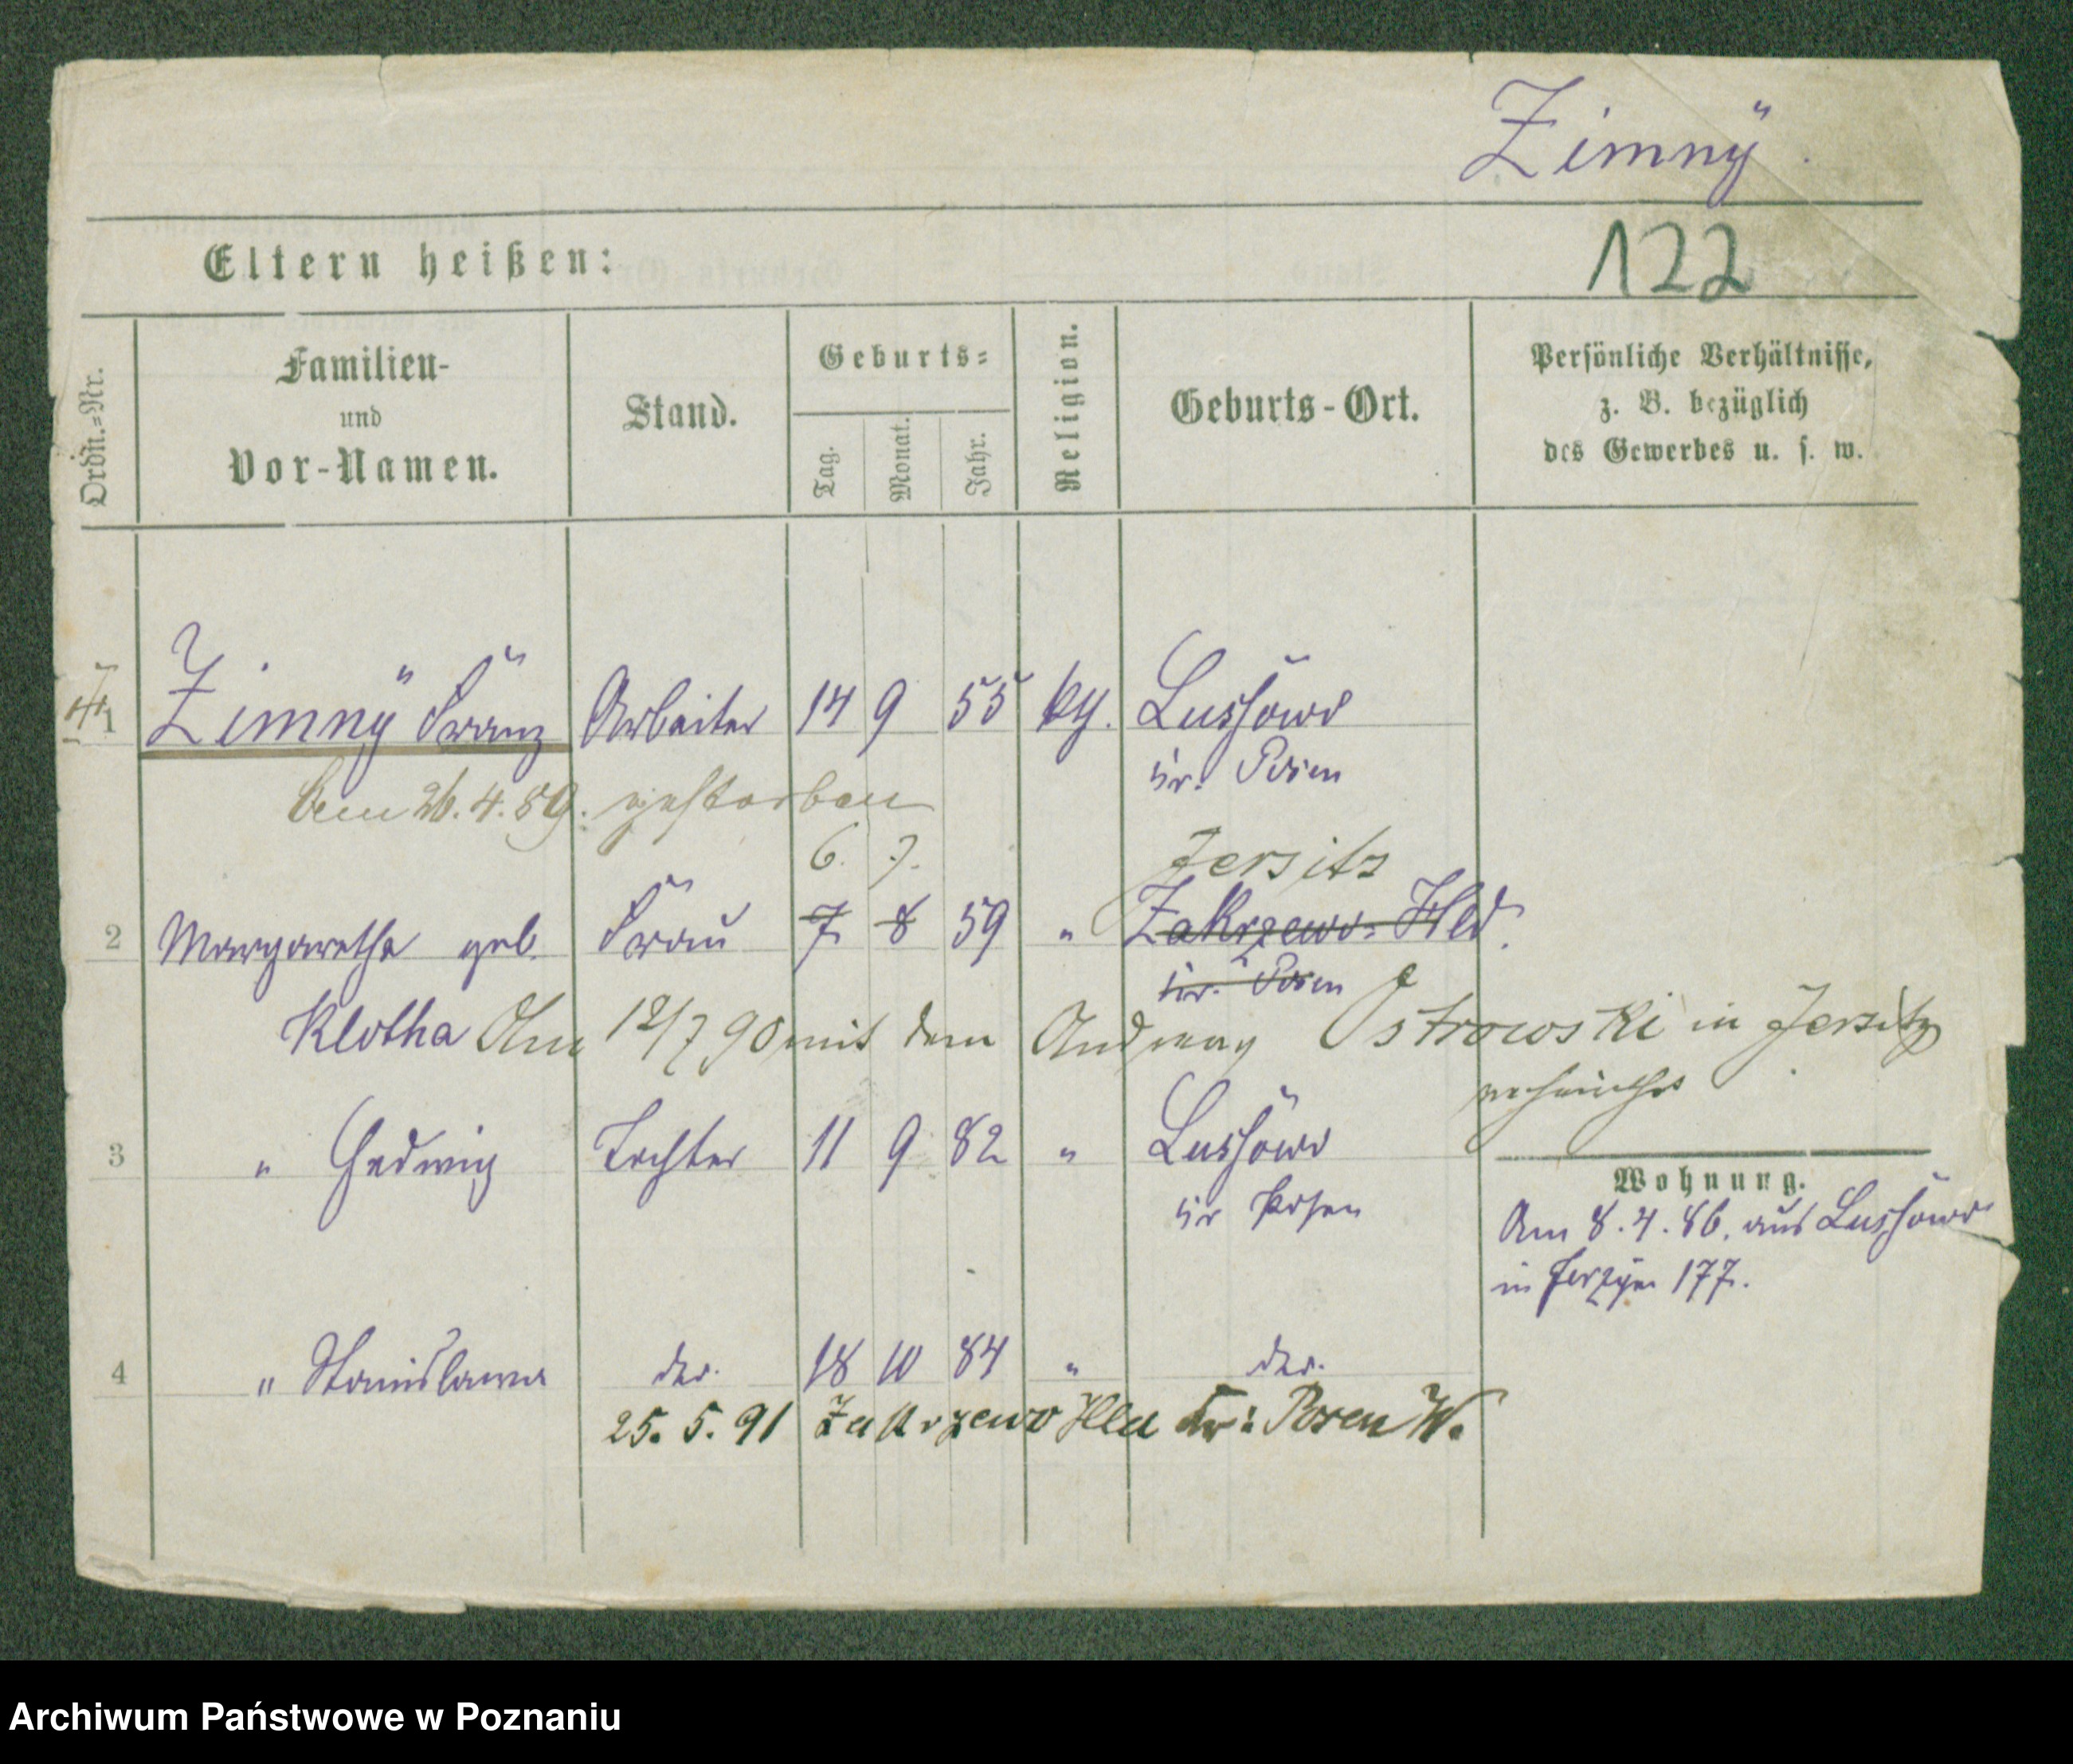 Zimny.
122
Eltern heißen:
Ordn.-Nr.
Familien-
und
Vor-Namen.
Stand.
Geburts-
Tag.
Monat.
Jahr.
Religion.
Geburts-Ort.
Persönliche Verhältnisse,
z. B. bezüglich
des Gewerbes u. s. w.
1 Zimny Franz Arbeiter 14 9 55 kth. Lussowo
Kr. Posen
26.4.89. gestorben
6. 7. Jersitz
2 Margaretha geb. Frau 7 8 59 " Zakrzewo-Hld.
Kr. Posen
Klotha Am 12/7 90 mit dem Andreas Ostrowski in Jersitz
verheirathet
3 " Hedwig Tochter 11 9 82 " Lussowo
Kr Posen
Wohnung.
Am 8.4.86. aus Lussowo
in 177.
4 " Stanislawa dto. 18 10 84 " dto.
25. 5. 91 Zakrzewo Hld Kr: Posen W.
Archiwum Państwowe w Poznaniu